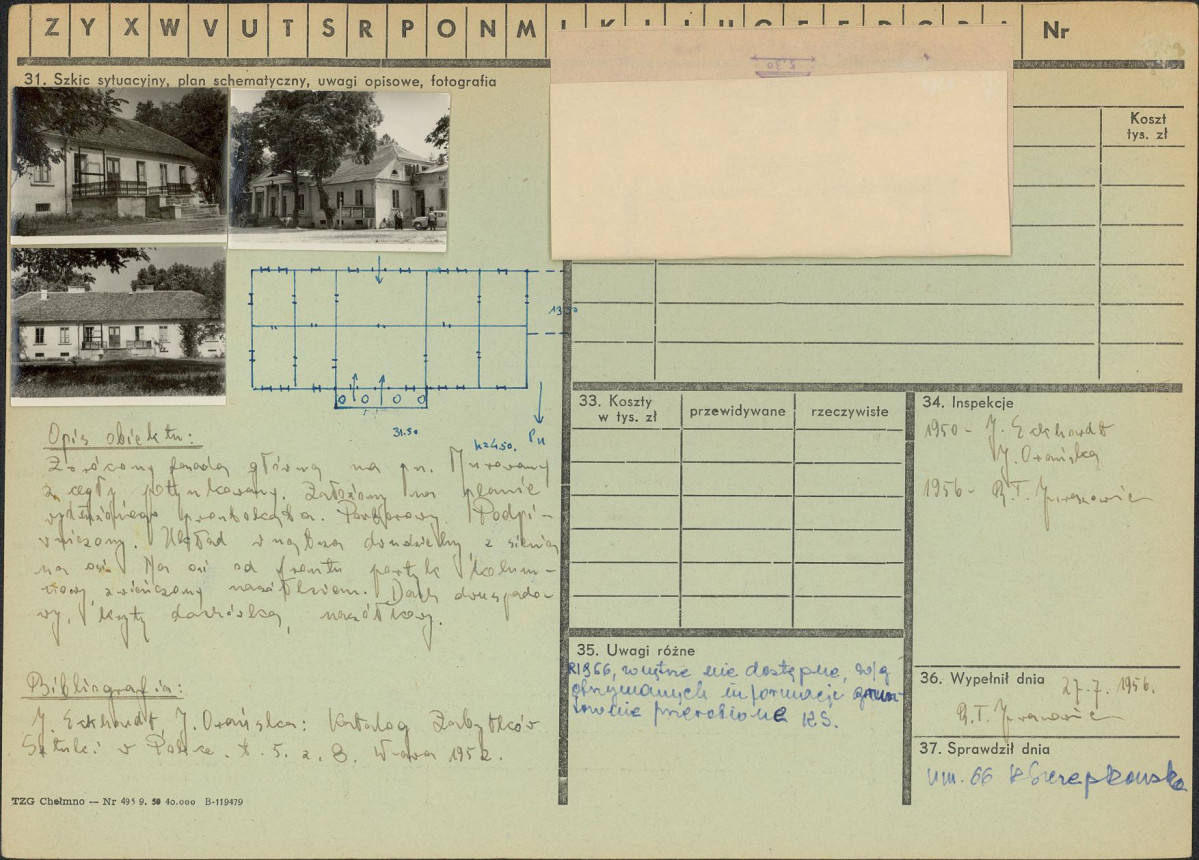 Z Y X W V U T S R P O N M Nr
31. Szkic sytuacyjny, plan schematyczny, uwagi opisowe, fotografia
5.30
Koszt
tys. zł
13.50
31.50
h=4.50.
Pn
Opis obiektu:
Zwrócony fasadą główną na pn. Murowany
z cegły potynkowany. Założony na planie
wydłużonego prostokąta. Parterowy. Podpi-
wniczony. Układ wnętrza dwudzielny z sienią
na osi. Na osi od frontu portyk kolum-
nowy zwieńczony naczółkiem. Dach dwuspado-
wy, kryty dachówką, naczółkowy.
Bibliografia:
J. Eckhardt J. Orańska: Katalog Zabytków
Sztuki w Polsce. t. 5. z. 8. W-awa 1952.
TZG Chełmno — Nr 495 9. 50 40.000 B-119479
33. Koszty
w tys. zł
przewidywane
rzeczywiste
34. Inspekcje
1950 - J. Eckhardt
J. Orańska
1956 - R.T.
35. Uwagi różne
R1966, wnętrze nie dostępne, w/g
otrzymanych informacji grun-
townie przerobione KS.
36. Wypełnił dnia 27.7. 1956.
R.T.
37. Sprawdził dnia
66 K Szczepkowska